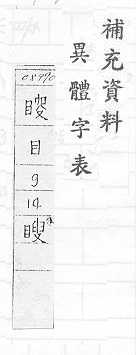 補充資料
異體字表
目
9
14
瞍